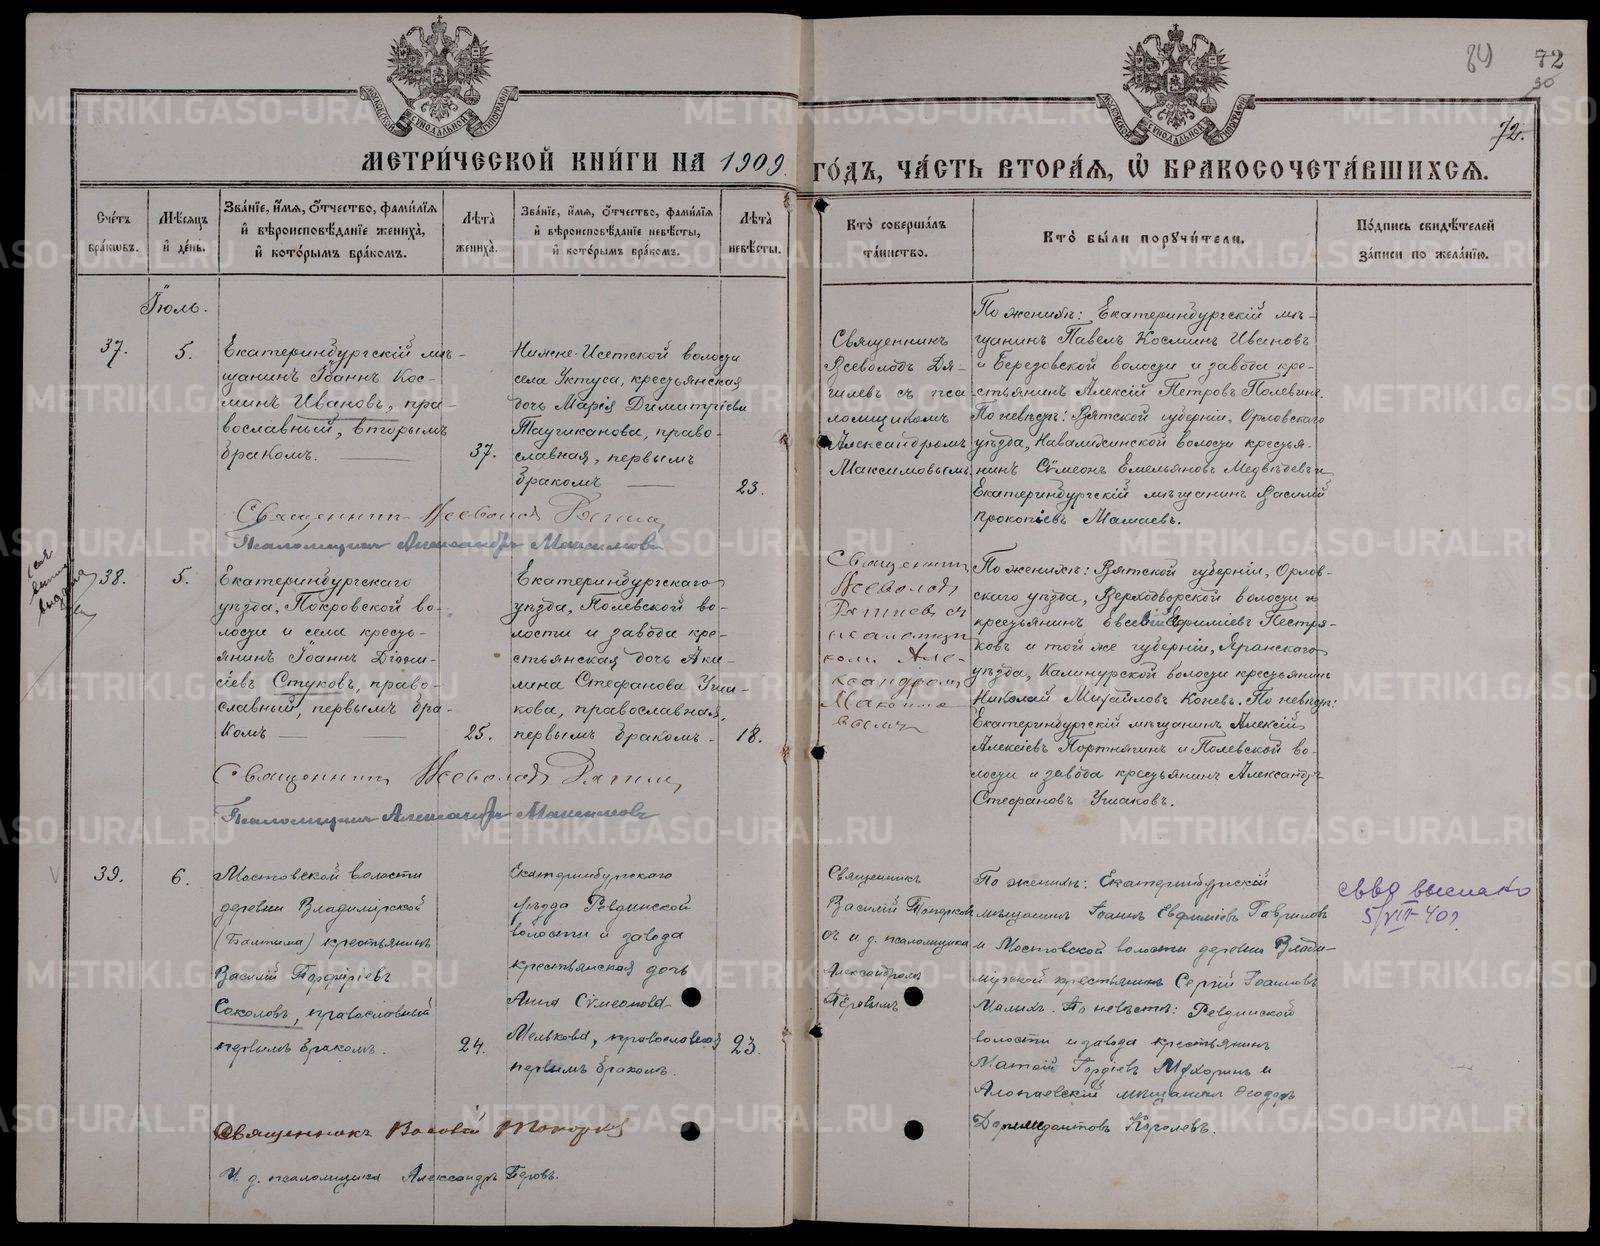 84 72
90
72.
МЕТРИ́ЧЕСКОЙ КНИ́ГИ НА 1909 ГО́ДЪ, ЧА́СТЬ ВТОРА́Я, Ѽ БРАКОСОЧЕТА́ВШИХСЯ.
Сче́тъ бра́ковъ.
Мѣ́сяцъ и҆ де́нь.
Зва́нїе, и҆́мя, ѻ҆́тчество, фами́лїя и҆ вѣроисповѣ́данїе жениха̀, и҆ кото́рымъ бра́комъ.
Лѣ́та жениха̀.
Зва́нїе, и҆́мя, ѻ҆́тчество, фами́лїя и҆ вѣроисповѣ́данїе невѣ́сты, и҆ кото́рымъ бра́комъ.
Лѣ́та невѣ́сты.
Кто̀ соверша́лъ та́инство.
Кто̀ бы́ли порꙋчи́тели.
По́дпись свидѣ́телей за́писи по жела́нїю.
Іюль.
37.
5.
Екатеринбургскій мѣ-
щанинъ Іоаннъ Кос-
минъ Ивановъ, пра-
вославный, вторымъ
бракомъ.
37.
Нижне-Исетской волости
села Уктуса, крестьянская
дочь Марія Димитріева
православная, первымъ
бракомъ
23.
Священникъ
Всеволодъ
съ пса-
ломщикомъ
Александромъ
Максимовымъ
По женихѣ: Екатеринбургскій мѣ-
щанинъ Павелъ Косминъ Ивановъ
и Березовской волости и завода кре-
стьянинъ Алексій Петровъ
По невѣстѣ: Вятской губерніи, Орловскаго
уѣзда, волости крестья-
нинъ Сѵмеонъ Емельяновъ Медвѣдевъ и
Екатеринбургскій мѣщанинъ Василій
Прокопіевъ Мамаевъ.
Священникъ Всеволодъ
Псаломщикъ Александръ Максимовъ
38.
5.
Екатеринбургскаго
уѣзда, Покровской во-
лости и села кресть-
янинъ Іоаннъ Діони-
сіевъ Стуковъ, право-
славный, первымъ бра-
комъ
25.
Екатеринбургскаго
уѣзда, Полевской во-
лости и завода кре-
стьянская дочь Аки-
лина Стефанова Уша-
кова, православная,
первымъ бракомъ
18.
Священникъ
Всеволодъ
съ
псаломщи-
комъ Але-
ксандромъ
Максимо-
вымъ
По женихѣ: Вятской губерніи, Орлов-
скаго уѣзда, Верходворской волости
крестьянинъ Евсевій Ефиміевъ Пестря-
ковъ и той же губерніи, Яранскаго
уѣзда, волости крестьянинъ
Николай Михайловъ Коневъ. По невѣстѣ:
Екатеринбургскій мѣщанинъ Алексій
Алексіевъ Портнягинъ и Полевской во-
лости и завода крестьянинъ Александръ
Стефановъ Ушаковъ.
Священникъ Всеволодъ
Псаломщикъ Александръ Максимовъ
39.
6.
Мостовской волости
деревни Владимірской
(Балтыма) крестьянинъ
Василій Порфиріевъ
Соколовъ, православный
первымъ бракомъ.
24.
Екатеринбургскаго
уѣзда Ревдинской
волости и завода
крестьянская дочь
Анна Сѵмеонова
Мелькова, православная
первымъ бракомъ.
23.
Священникъ
Василій
съ и. д. псаломщика
Александромъ
Перовымъ
По женихѣ: Екатеринбургскій
мѣщанинъ Іоаннъ Евфиміевъ Гавриловъ
и Мостовской волости деревни Влади-
мірской крестьянинъ Сергій Іоанновъ
Малыхъ. По невѣстѣ: Ревдинской
волости и завода крестьянинъ
Матѳій Гордіевъ Мухоринъ и
Алапаевскій мѣщанинъ Ѳеодоръ
Королевъ.
выслано
5/VIII-40г.
Священникъ Василій
И. д. псаломщика Александръ Перовъ.
METRIKI.GASO-URAL.RU